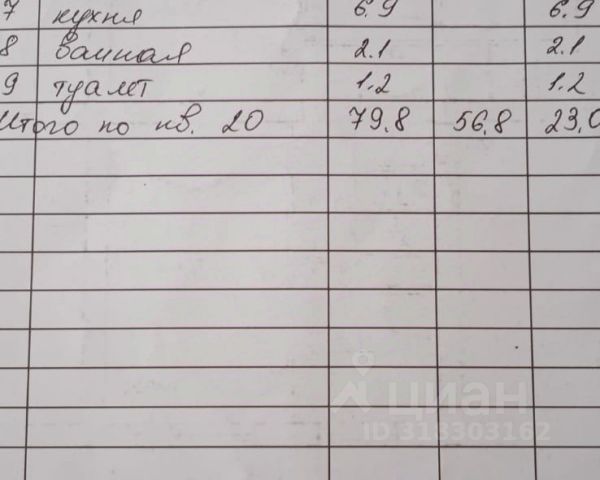 7 кухня 6.9 6.9
8 ванная 2.1 2.1
9 туалет 1.2 1.2
Итого по кв. 20 79.8 56.8 23.0
циан
ID 318303162